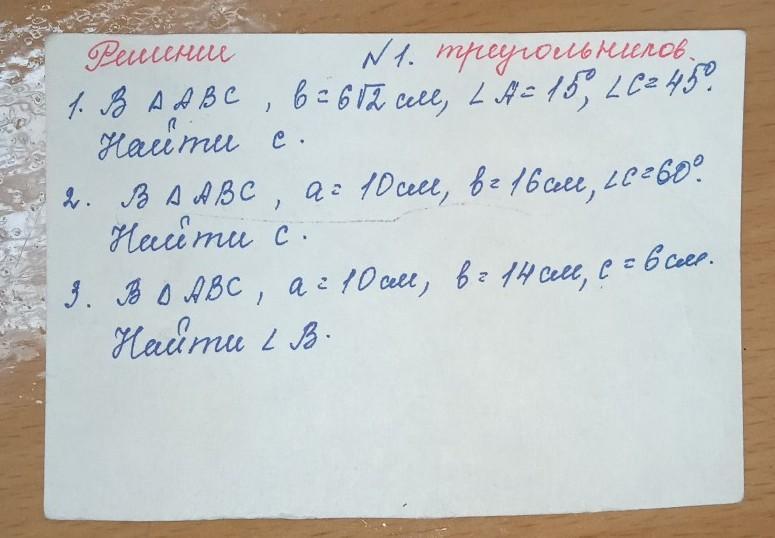 Решение №1. треугольников.
1. В △ABC, b=6√2 см, ∠A=15°, ∠C=45°.
Найти c.
2. В △ABC, a=10см, b=16см, ∠C=60°.
Найти c.
3. В △ABC, a=10см, b=14см, c=6см.
Найти ∠B.